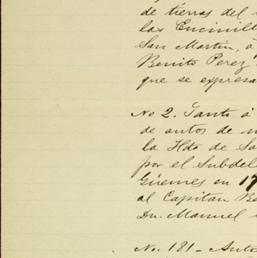 de tierras del
las Encinill
San Martin, á
Benito Perez
que se expresa
No 2. Tanto á
de autos de m
la Hda de Sa
por el Subdel
Güemes en 17
al Capitan Be
Dn. Manuel
No. 181 - Auto